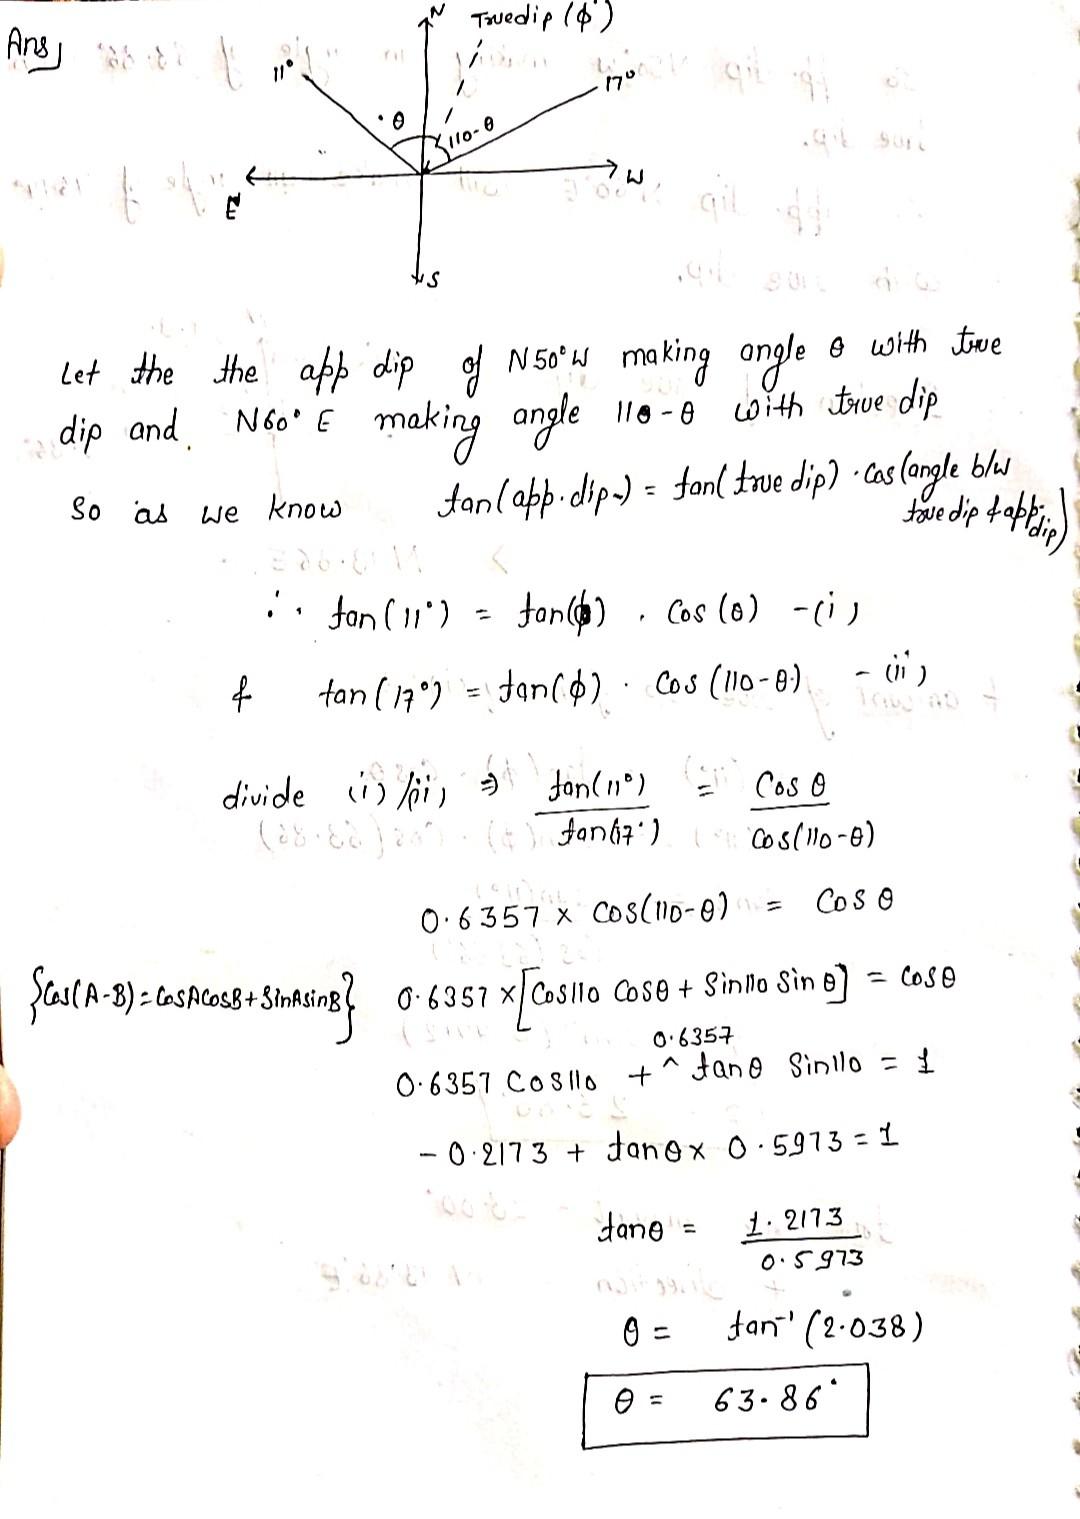 Ans,
N
True dip (ϕ)
11°
17°
θ
110-θ
W
E
S
Let the the app dip of N50°W making angle θ with true
dip and N60° E making angle 110-θ with true dip
So as we know tan(app.dip) = tan(true dip) · Cos(angle b/w
true dip & app. dip)
∴ tan(11°) = tan(ϕ) . Cos(θ) -(i)
& tan(17°) = tan(ϕ) · Cos(110-θ) -(ii)
divide (i)/(ii) ⇒ tan(11°)/tan(17°) = Cosθ/Cos(110-θ)
0.6357 x Cos(110-θ) = Cosθ
{Cos(A-B)=CosACosB+SinAsinB} 0.6357 x[Cos110 Cosθ + Sin110 Sinθ] = Cosθ
0.6357 Cos110 + ^ 0.6357 tanθ Sin110 = 1
-0.2173 + tanθ x 0.5973 = 1
tanθ = 1.2173/0.5973
θ = tan⁻¹(2.038)
θ = 63.86°